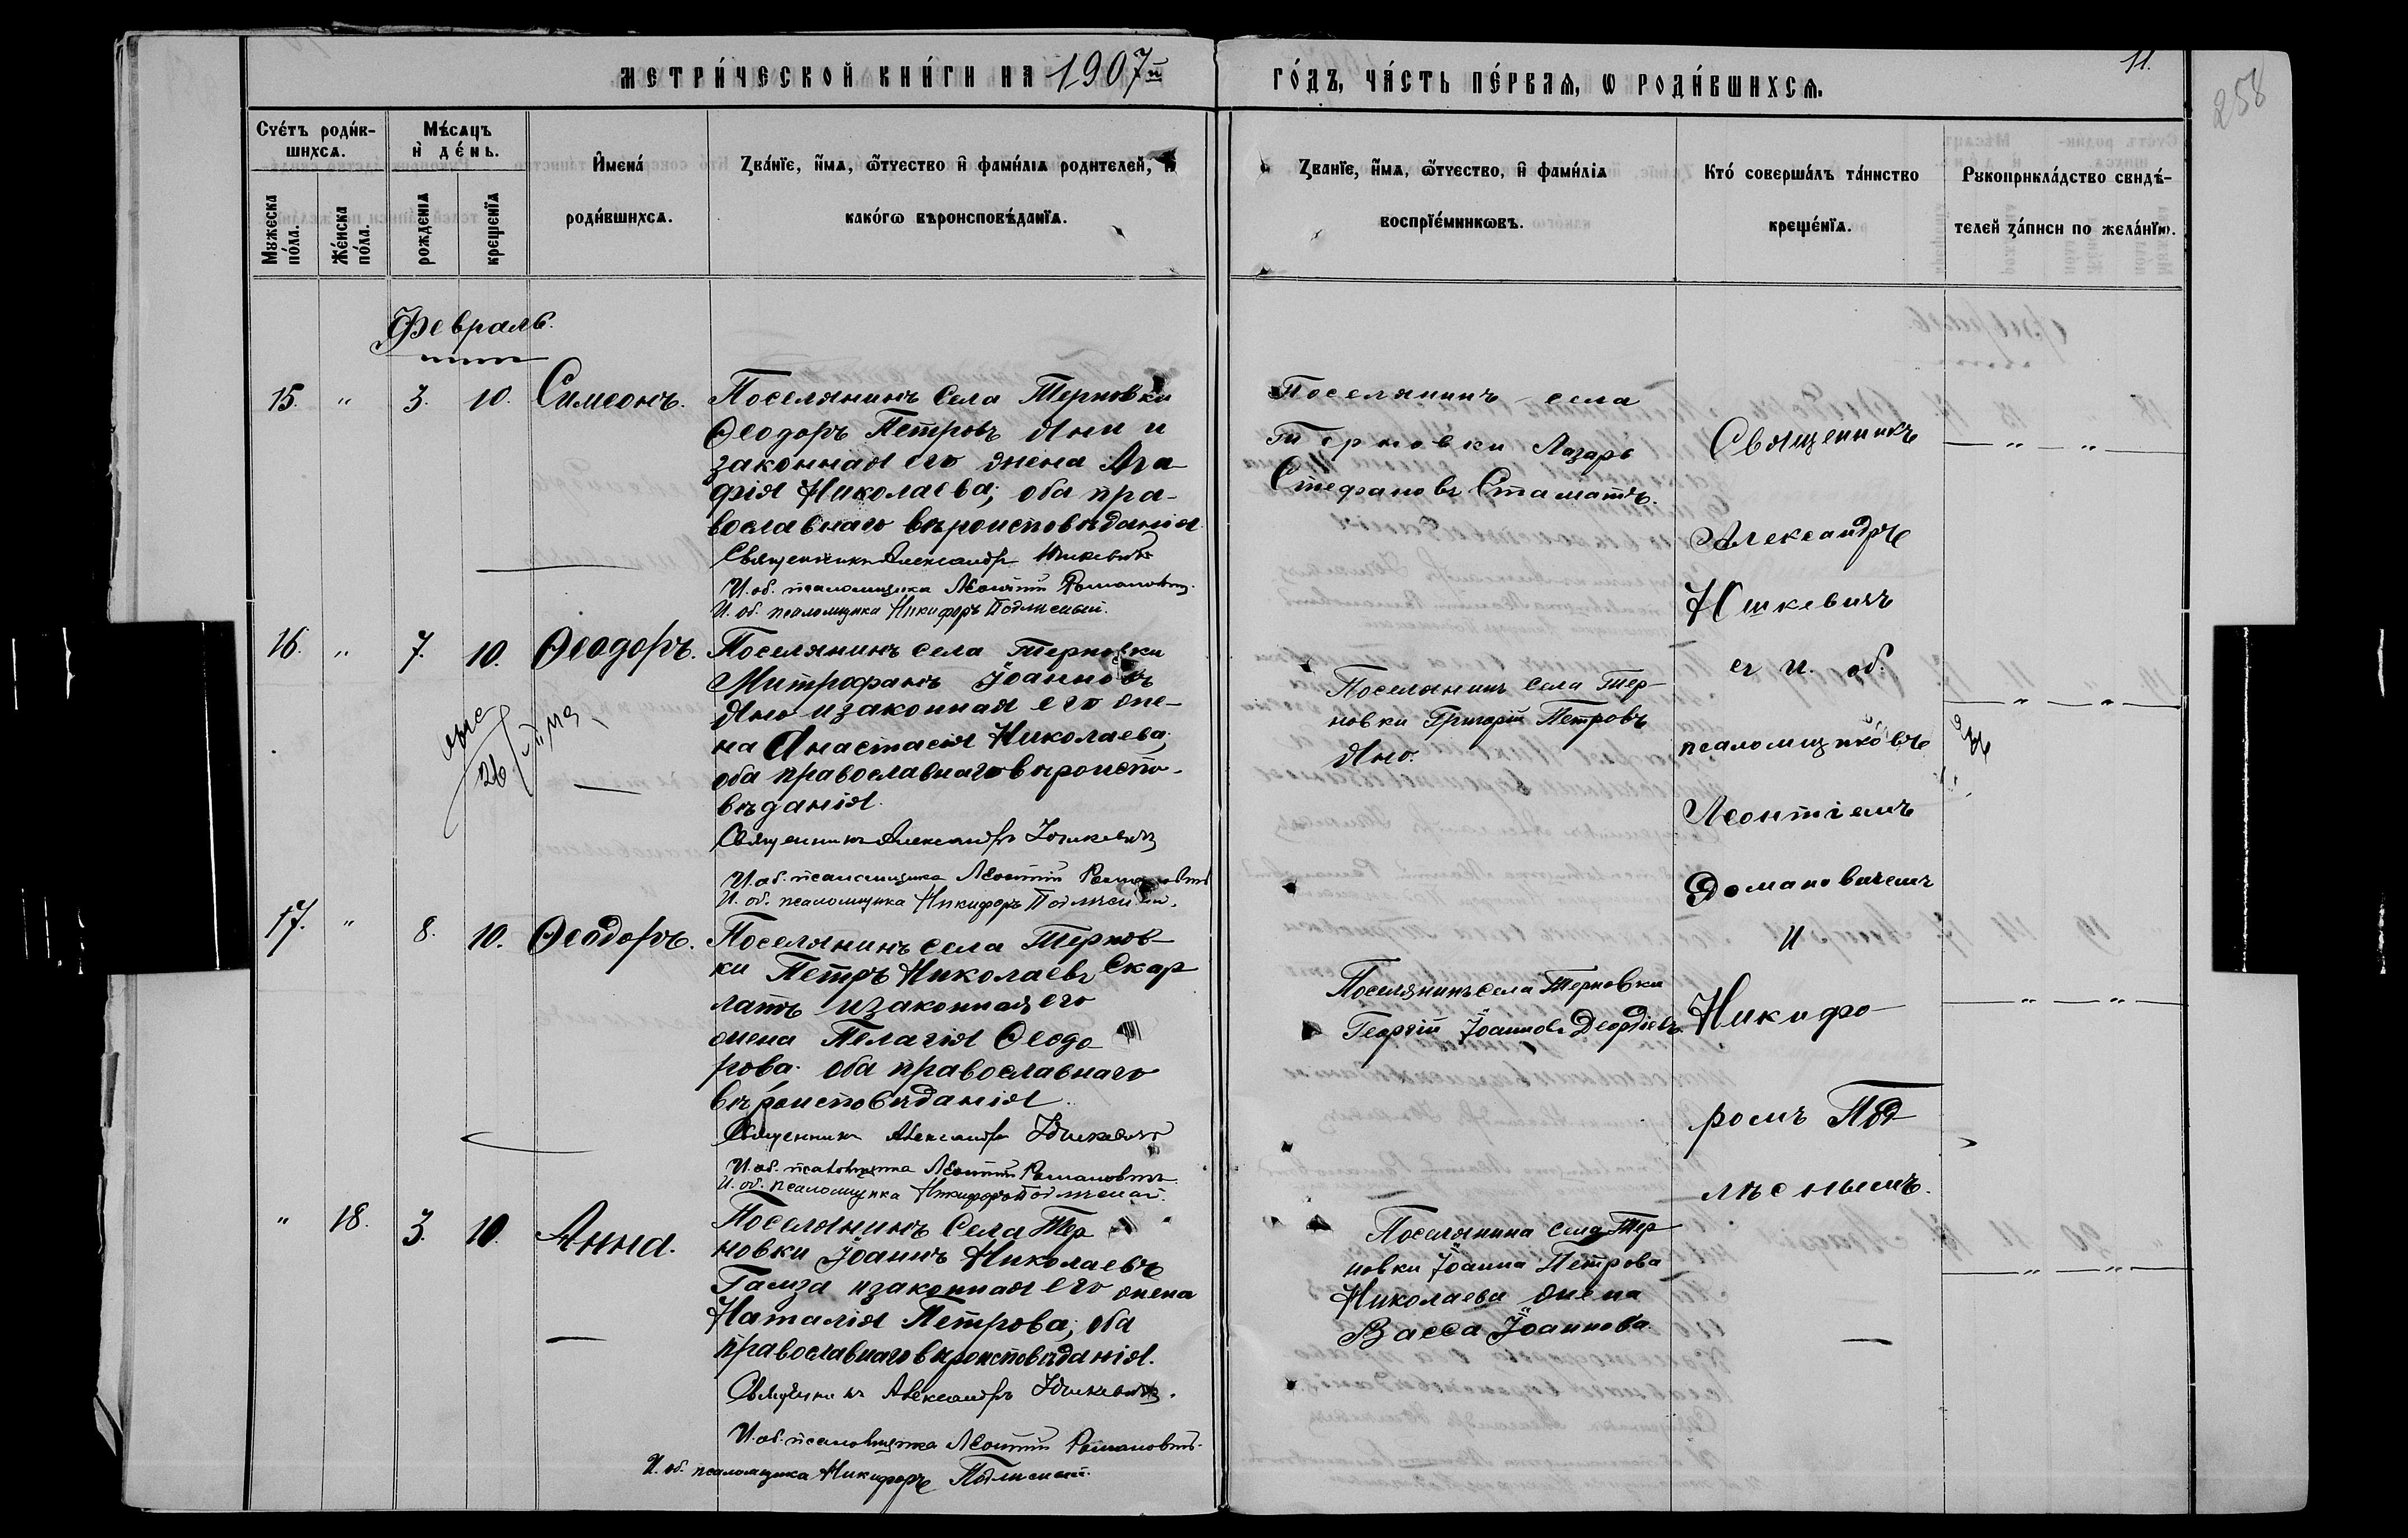 МЕТРИ́ЧЕСКОЙ КНИ́ГИ НА 1907й
ГО́ДЪ, ЧА́СТЬ ПЕ́РВАѦ, Ѡ РОДИ́ВШИХСѦ.
11.
258
Счéтъ роди́в-
шихсѧ.
Мужеска
по́ла.
Же́нска
по́ла.
Мѣ́сѧцъ
и́ де́нь.
рожденїѧ
крещенїѧ
И҆мена́
роди́вшихсѧ.
Зва́нїе, и҆́мѧ, ѻ҆́тчество и҆ фами́лїѧ родителей, и҆
како́гѡ вѣроисповѣ́данїѧ.
Зва́нїе, и҆́мѧ, ѻ҆́тчество, и҆ фами́лїѧ
воспрїе́мникѡвъ.
Кто́ соверша́лъ та́инство
креще́нїѧ.
Рукоприкла́дство свидѣ́-
телей за́писи по жела́нїю.
Февраль.
15. " 3. 10. Симеонъ.
Поселянинъ села Терновки
Ѳеодоръ Петровъ Яни и
законная его жена Ага
фія Николаева; оба пра-
вославнаго вѣроисповѣданія
Священникъ Александръ Юшкевичъ
И. об. псаломщика Леонтій Романовичъ.
И. об. псаломщика Никифоръ Подлѣсный.
Поселянинъ села
Терновки Лазарь
Стефановъ Стаматъ.
Священникъ
Александръ
Юшкевичъ
съ и. об.
псаломщиковъ
Леонтіемъ
Романовичемъ
и
Никифо-
ромъ Под
лѣснымъ.
16. " 7. 10. Ѳеодоръ.
Поселянинъ села Терновки
Митрофанъ Іоанновъ
Яно и законная его же-
на Анастасія Николаева;
оба православнаго вѣроиспо-
вѣданія.
Священникъ Александръ Юшкевичъ
И. об. псаломщика Леонтій Романовичъ
И. об. псаломщика Никифоръ Подлѣсный.
Поселянинъ села Тер-
новки Григорій Петровъ
Яно.
26
17. " 8. 10. Ѳеодоръ.
Поселянинъ села Тернов-
ки Петръ Николаевъ Скар
латъ и законная его
жена Пелагія Ѳеодо
рова. оба православнаго
вѣроисповѣданія.
Священникъ Александръ Юшкевичъ
И. об. псаломщика Леонтій Романовичъ
И. об. псаломщика Никифоръ Подлѣсный.
Поселянинъ села Терновки
Георгій Іоанновъ Деордіевъ
" 18. 3. 10. Анна.
Поселянинъ села Тер
новки Іоаннъ Николаевъ
Гамза и законная его жена
Наталія Петрова; оба
православнаго вѣроисповѣданія.
Священникъ Александръ Юшкевичъ.
И. об. псаломщика Леонтій Романовичъ.
И. об. псаломщика Никифоръ Подлѣсный.
Поселянина села Тер
новки Іоанна Петрова
Николаева жена
Васса Іоаннова